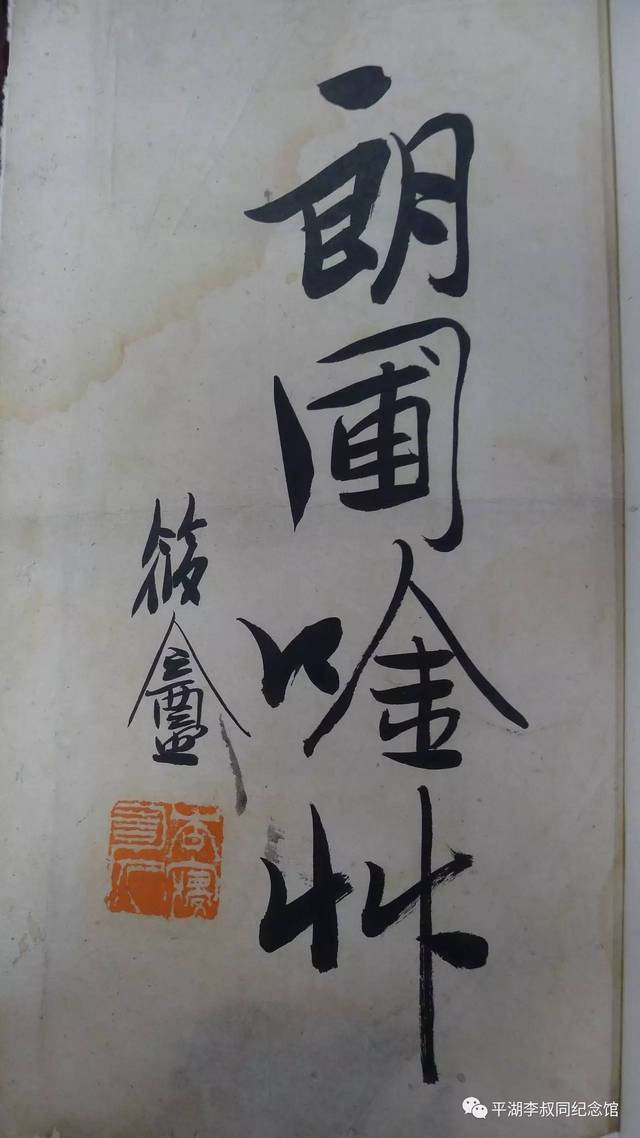 朗圃唫艸
筱盦
平湖李叔同纪念馆